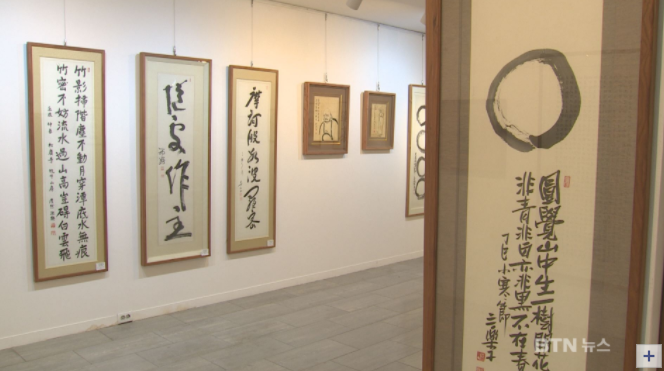 竹影掃階塵不動月穿潭底水無痕
竹密不妨流水過山高豈碍白雲飛
隨處作主
摩訶般若波羅蜜
圓覺山中生一樹開花
非青非白亦非黑不在春
小寒節
BTN 뉴스